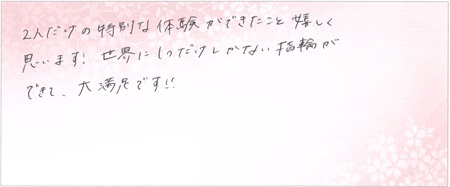 2人だけの特別な体験ができたこと嬉しく
思います! 世界に1つだけしかない指輪が
できて、大満足です!!